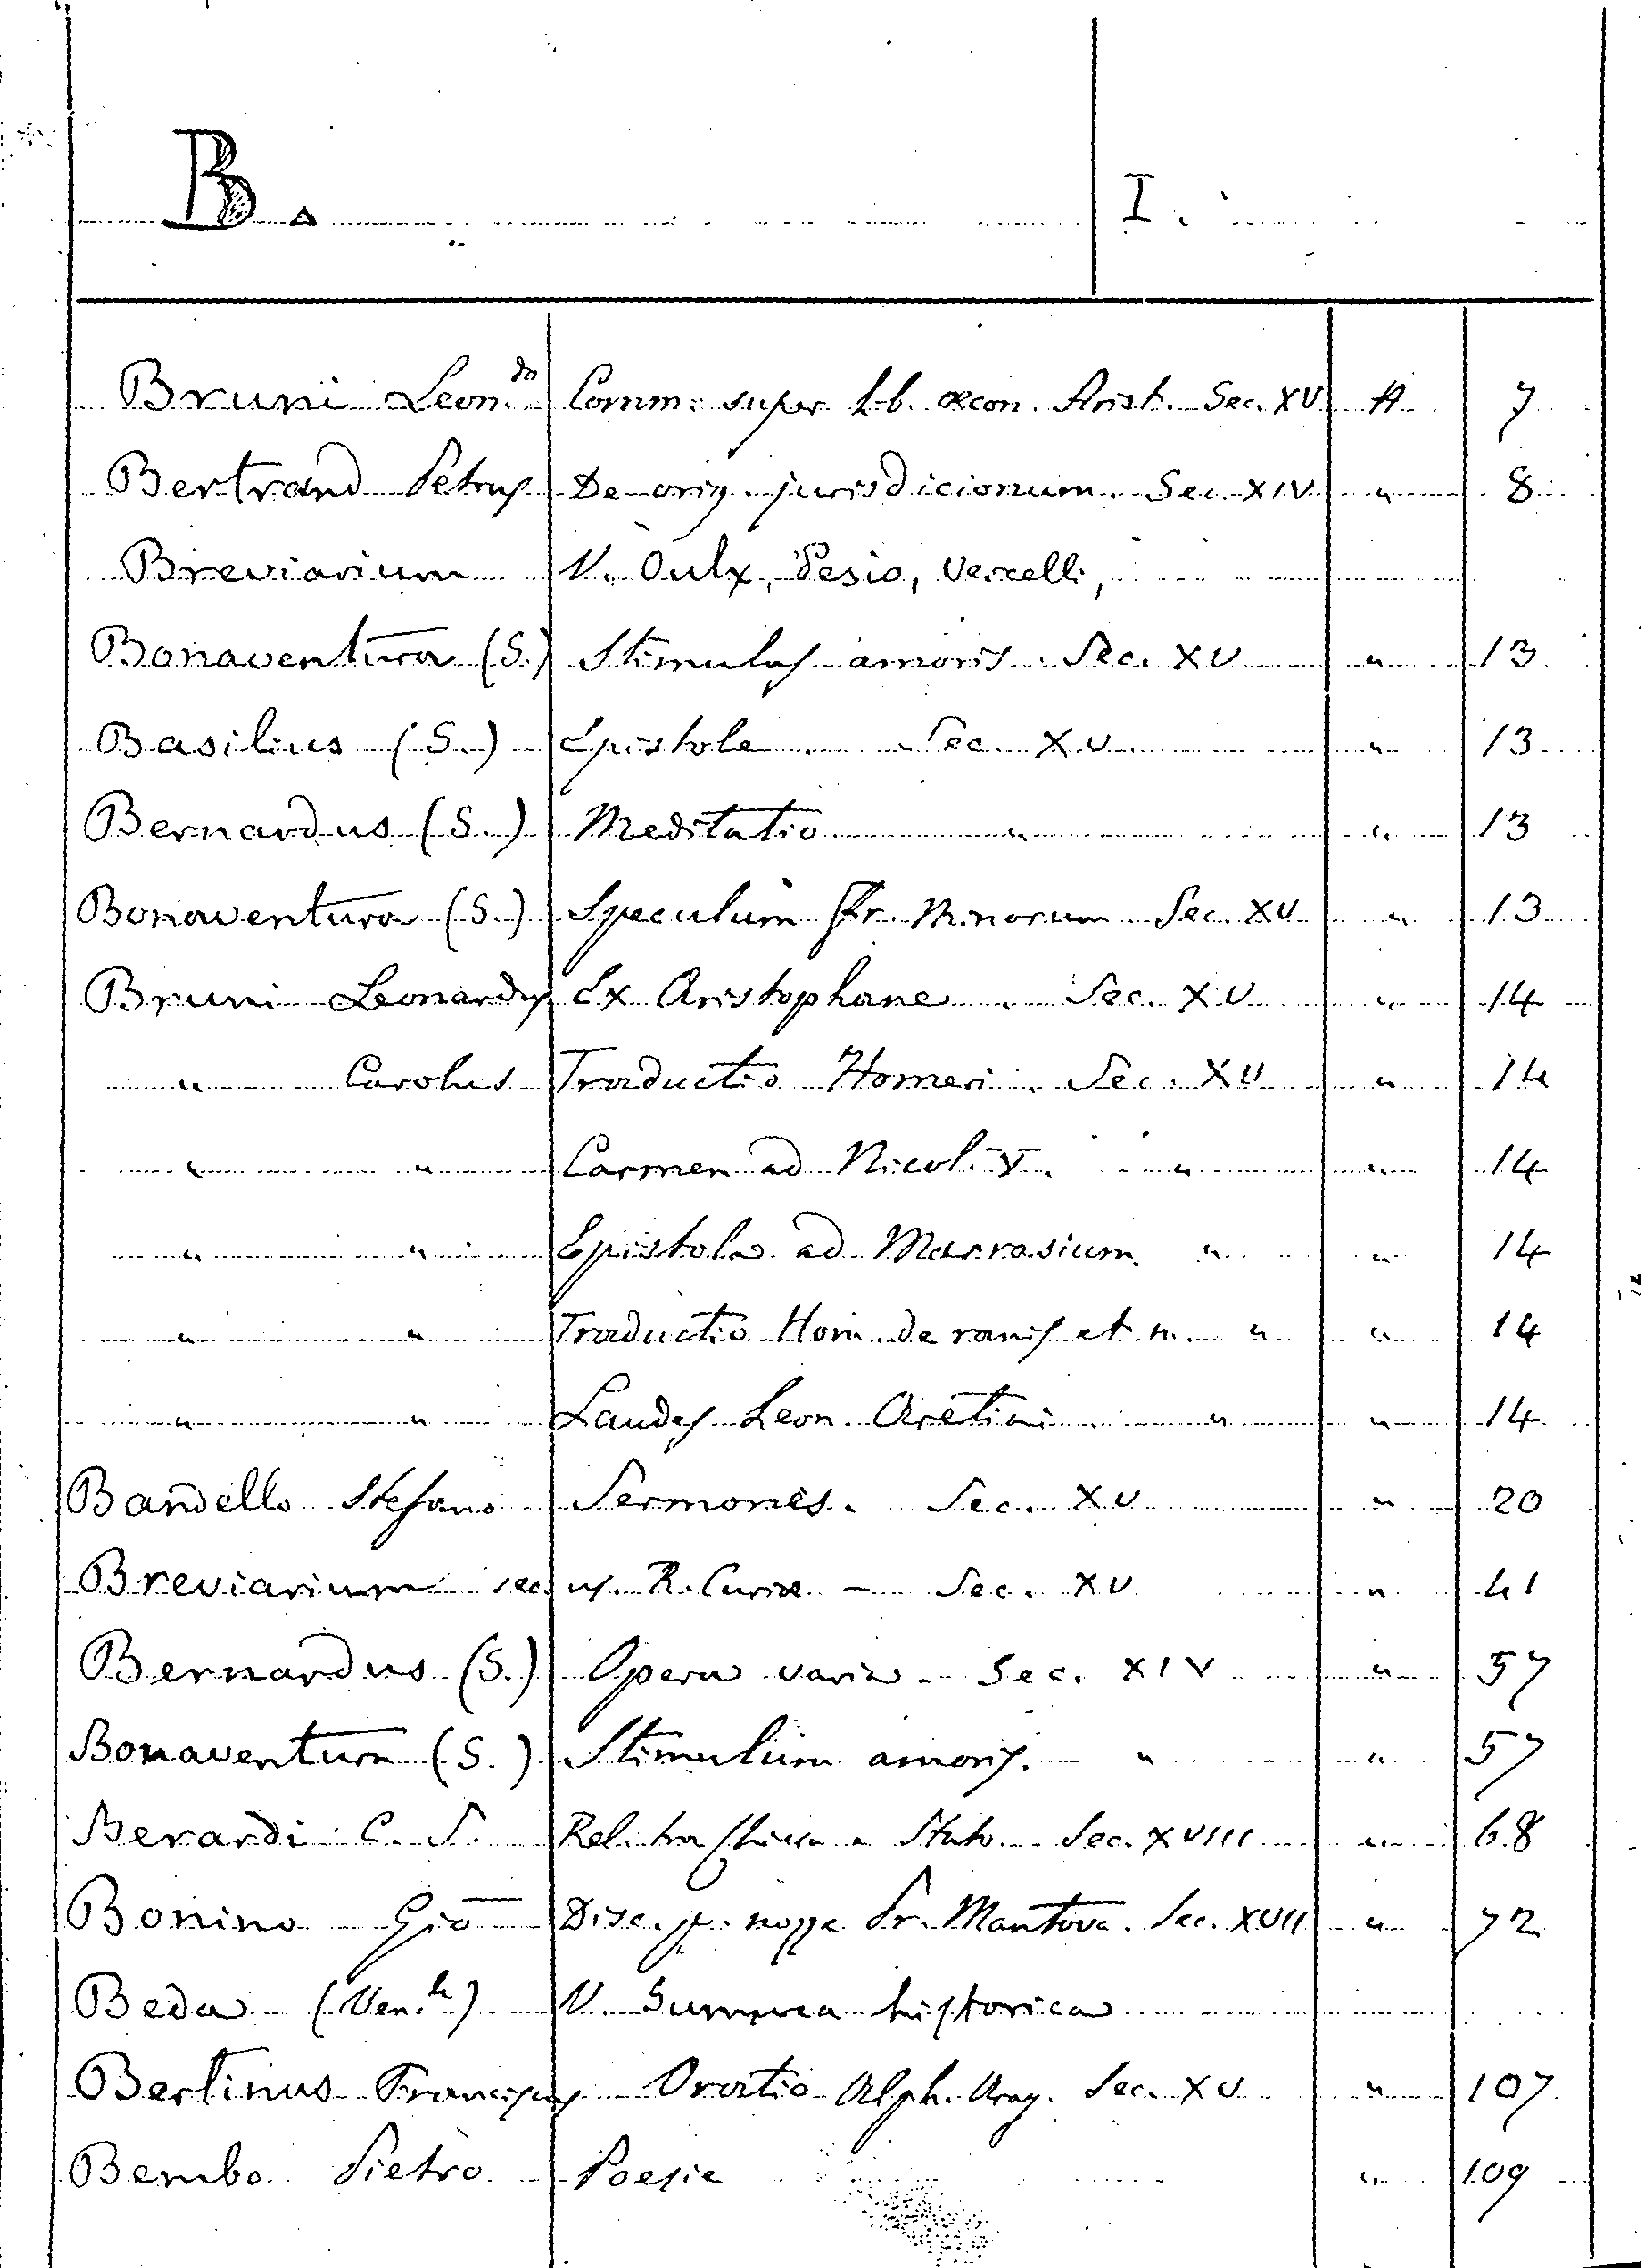 B.
I.
Bruni Leon.do Comm: super Lib. œcon. Arist. Sec. XV A 7
Bertrand Petrus De orig. jurisdicionum. Sec. XIV " 8
Breviarium V. Oulx, Pesio, Vercelli,
Bonaventura (S.) Stimulus amoris. Sec. XV " 13
Basilius (S.) Epistole Sec. XV " 13
Bernardus (S.) Meditatio " " 13
Bonaventura (S.) Speculum Fr. Minorum Sec. XV " 13
Bruni Leonardus Ex Aristophane. Sec. XV " 14
" Carolus Traductio Homeri. Sec. XV " 14
" " Carmen ad Nicol. V. " " 14
" " Epistola ad Marrasium " " 14
" " Traductio Hom. de ranis et m. " " 14
" " Laudes Leon. Aretini " " 14
Bandello Stefano Sermones. Sec. XV " 20
Breviarium sec. us. R. Curiæ - Sec. XV " 41
Bernardus (S.) Opera varia. Sec. XIV " 57
Bonaventura (S.) Stimulum amoris. " " 57
Berardi C. S. Rel. tra Chiesa e Stato. Sec. XVIII " 68
Bonino Gio Disc. p. nozze Pr. Mantova. Sec. XVII " 72
Beda (Ven.le) V. Summa historica
Bertinus Franciscus Oratio Alph. Arag. Sec. XV " 107
Bembo Pietro Poesie " 109